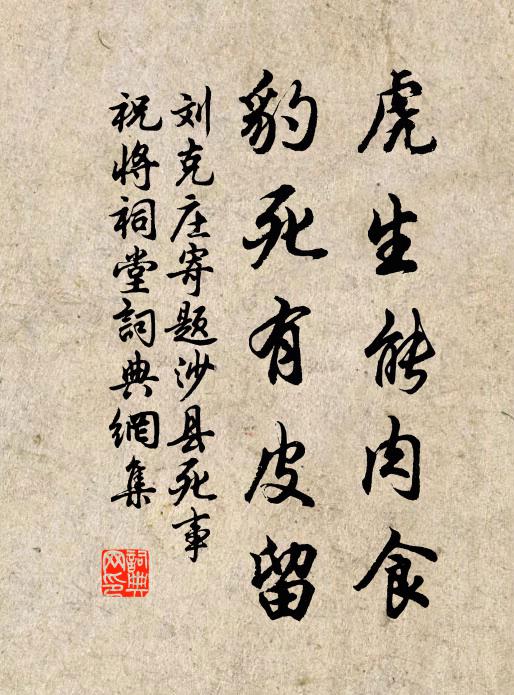 虎生能肉食
豹死有皮留
刘克庄寄题沙县死事
祝将祠堂詞典網集
詞典
网印